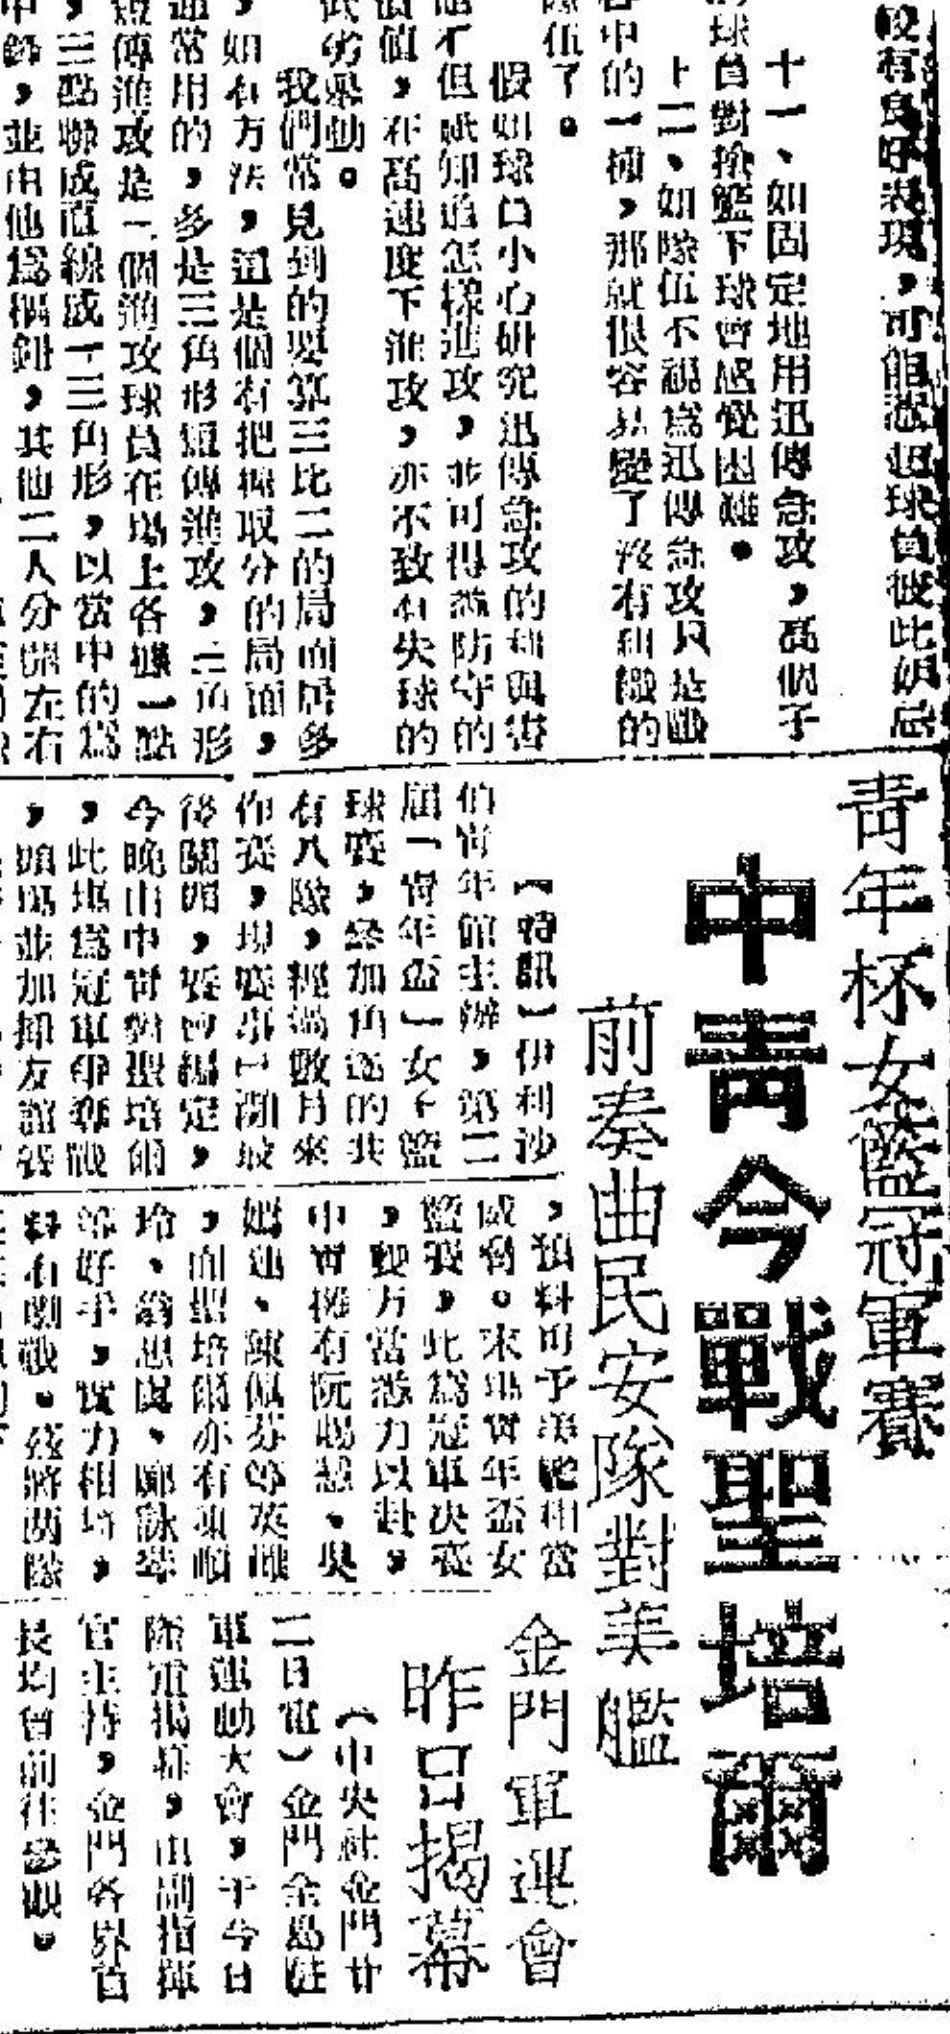 有良好表現，可能惹起球員彼此妒忌
十一、如固定地用迅傳急攻，高個子
球員對搶籃下球會感覺困難。
十二、如隊伍不視爲迅傳急攻只是戰
中的一種，那就很容易變了沒有組織的
隊伍了。
假如球員小心研究迅傳急攻的利與害
不但知道怎樣進攻，並可得防守的
價值，在高速度下進攻，亦不致有失球的
劣舉動。
我們常見到的要算三比二的局面居多
，如有方法，這是個有把握取分的局面，
通常用的，多是三角形短傳進攻，三角形
短傳進攻是三個進攻球員在場上各據一點
，三點聯成直線成一三角形，以當中的爲
中鋒，並由他爲樞鈕，其他二人分開左右
青年杯女籃冠軍賽
中青今戰聖培爾
前奏曲民安隊對美艦
【特訊】伊利沙
伯青年館主辦，第二
屆「青年盃」女子籃
球賽，參加角逐的共
有八隊，經過數月來
作賽，現賽事已瀕最
後關頭，賽會編定，
今晚由中青對聖培爾
，此場爲冠軍爭奪戰
，頭場並加插友誼賽
，預料可予美艦相當
威脅。末場青年盃女
籃賽，此爲冠軍决賽
，雙方當悉力以赴，
中青擁有阮賜慧、吳
嫦迎、陳佩芬等英雌
，而聖培爾亦有東順
玲、翁思虞、鄺詠萍
等好手，實力相埒，
料有劇戰。茲將兩隊
金門軍運會
昨日揭幕
（中央社金門廿
二日電）金門全島陸
軍運動大會，于今日
隆重揭幕，由副指揮
官主持，金門各界首
長均曾前往參觀。